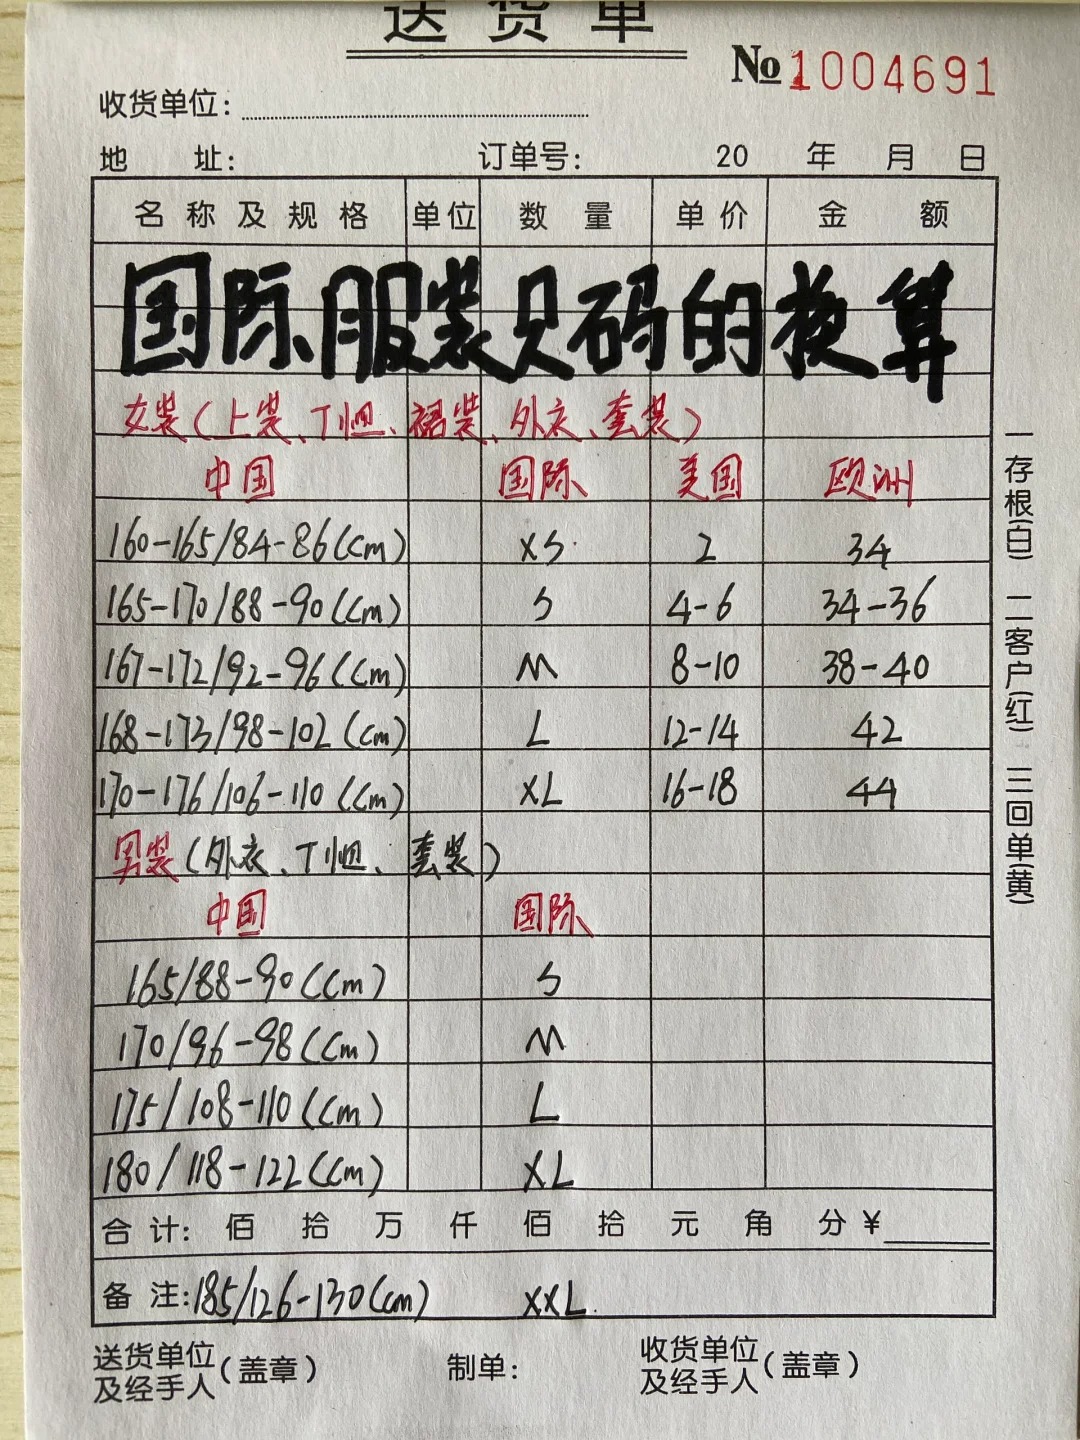 送货单
№1004691
收货单位:
地 址: 订单号: 20 年 月 日
名称及规格 单位 数量 单价 金额
国际服装尺码的换算
女装(上装、T恤、裙装、外衣、套装)
中国 国际 美国 欧洲
160-165/84-86(cm) XS 2 34
165-170/88-90(cm) S 4-6 34-36
167-172/92-96(cm) M 8-10 38-40
168-173/98-102(cm) L 12-14 42
170-176/106-110(cm) XL 16-18 44
男装(外衣、T恤、套装)
中国 国际
165/88-90(cm) S
170/96-98(cm) M
175/108-110(cm) L
180/118-122(cm) XL
合计: 佰 拾 万 仟 佰 拾 元 角 分 ¥
备注:185/126-130(cm) XXL
送货单位及经手人(盖章) 制单: 收货单位及经手人(盖章)
一存根(白) 二客户(红) 三回单(黄)